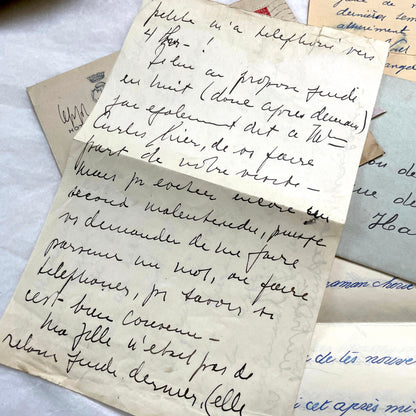 petite m'a téléphoné vers
4 hrs - !
Je lui ai proposé jeudi
en huit (donc après demain)
j'ai également dit à Mme
Curlis hier, de vs faire
part de notre visite -
mais pr éviter encore un
second malentendu, puis-je
vs demander de me faire
parvenir un mot, ou faire
téléphoner, pr savoir si
c'est bien convenu -
Ma fille n'était pas de
retour jeudi dernier, (elle
dernières
maman chérie
de tes nouve
et cet après mi